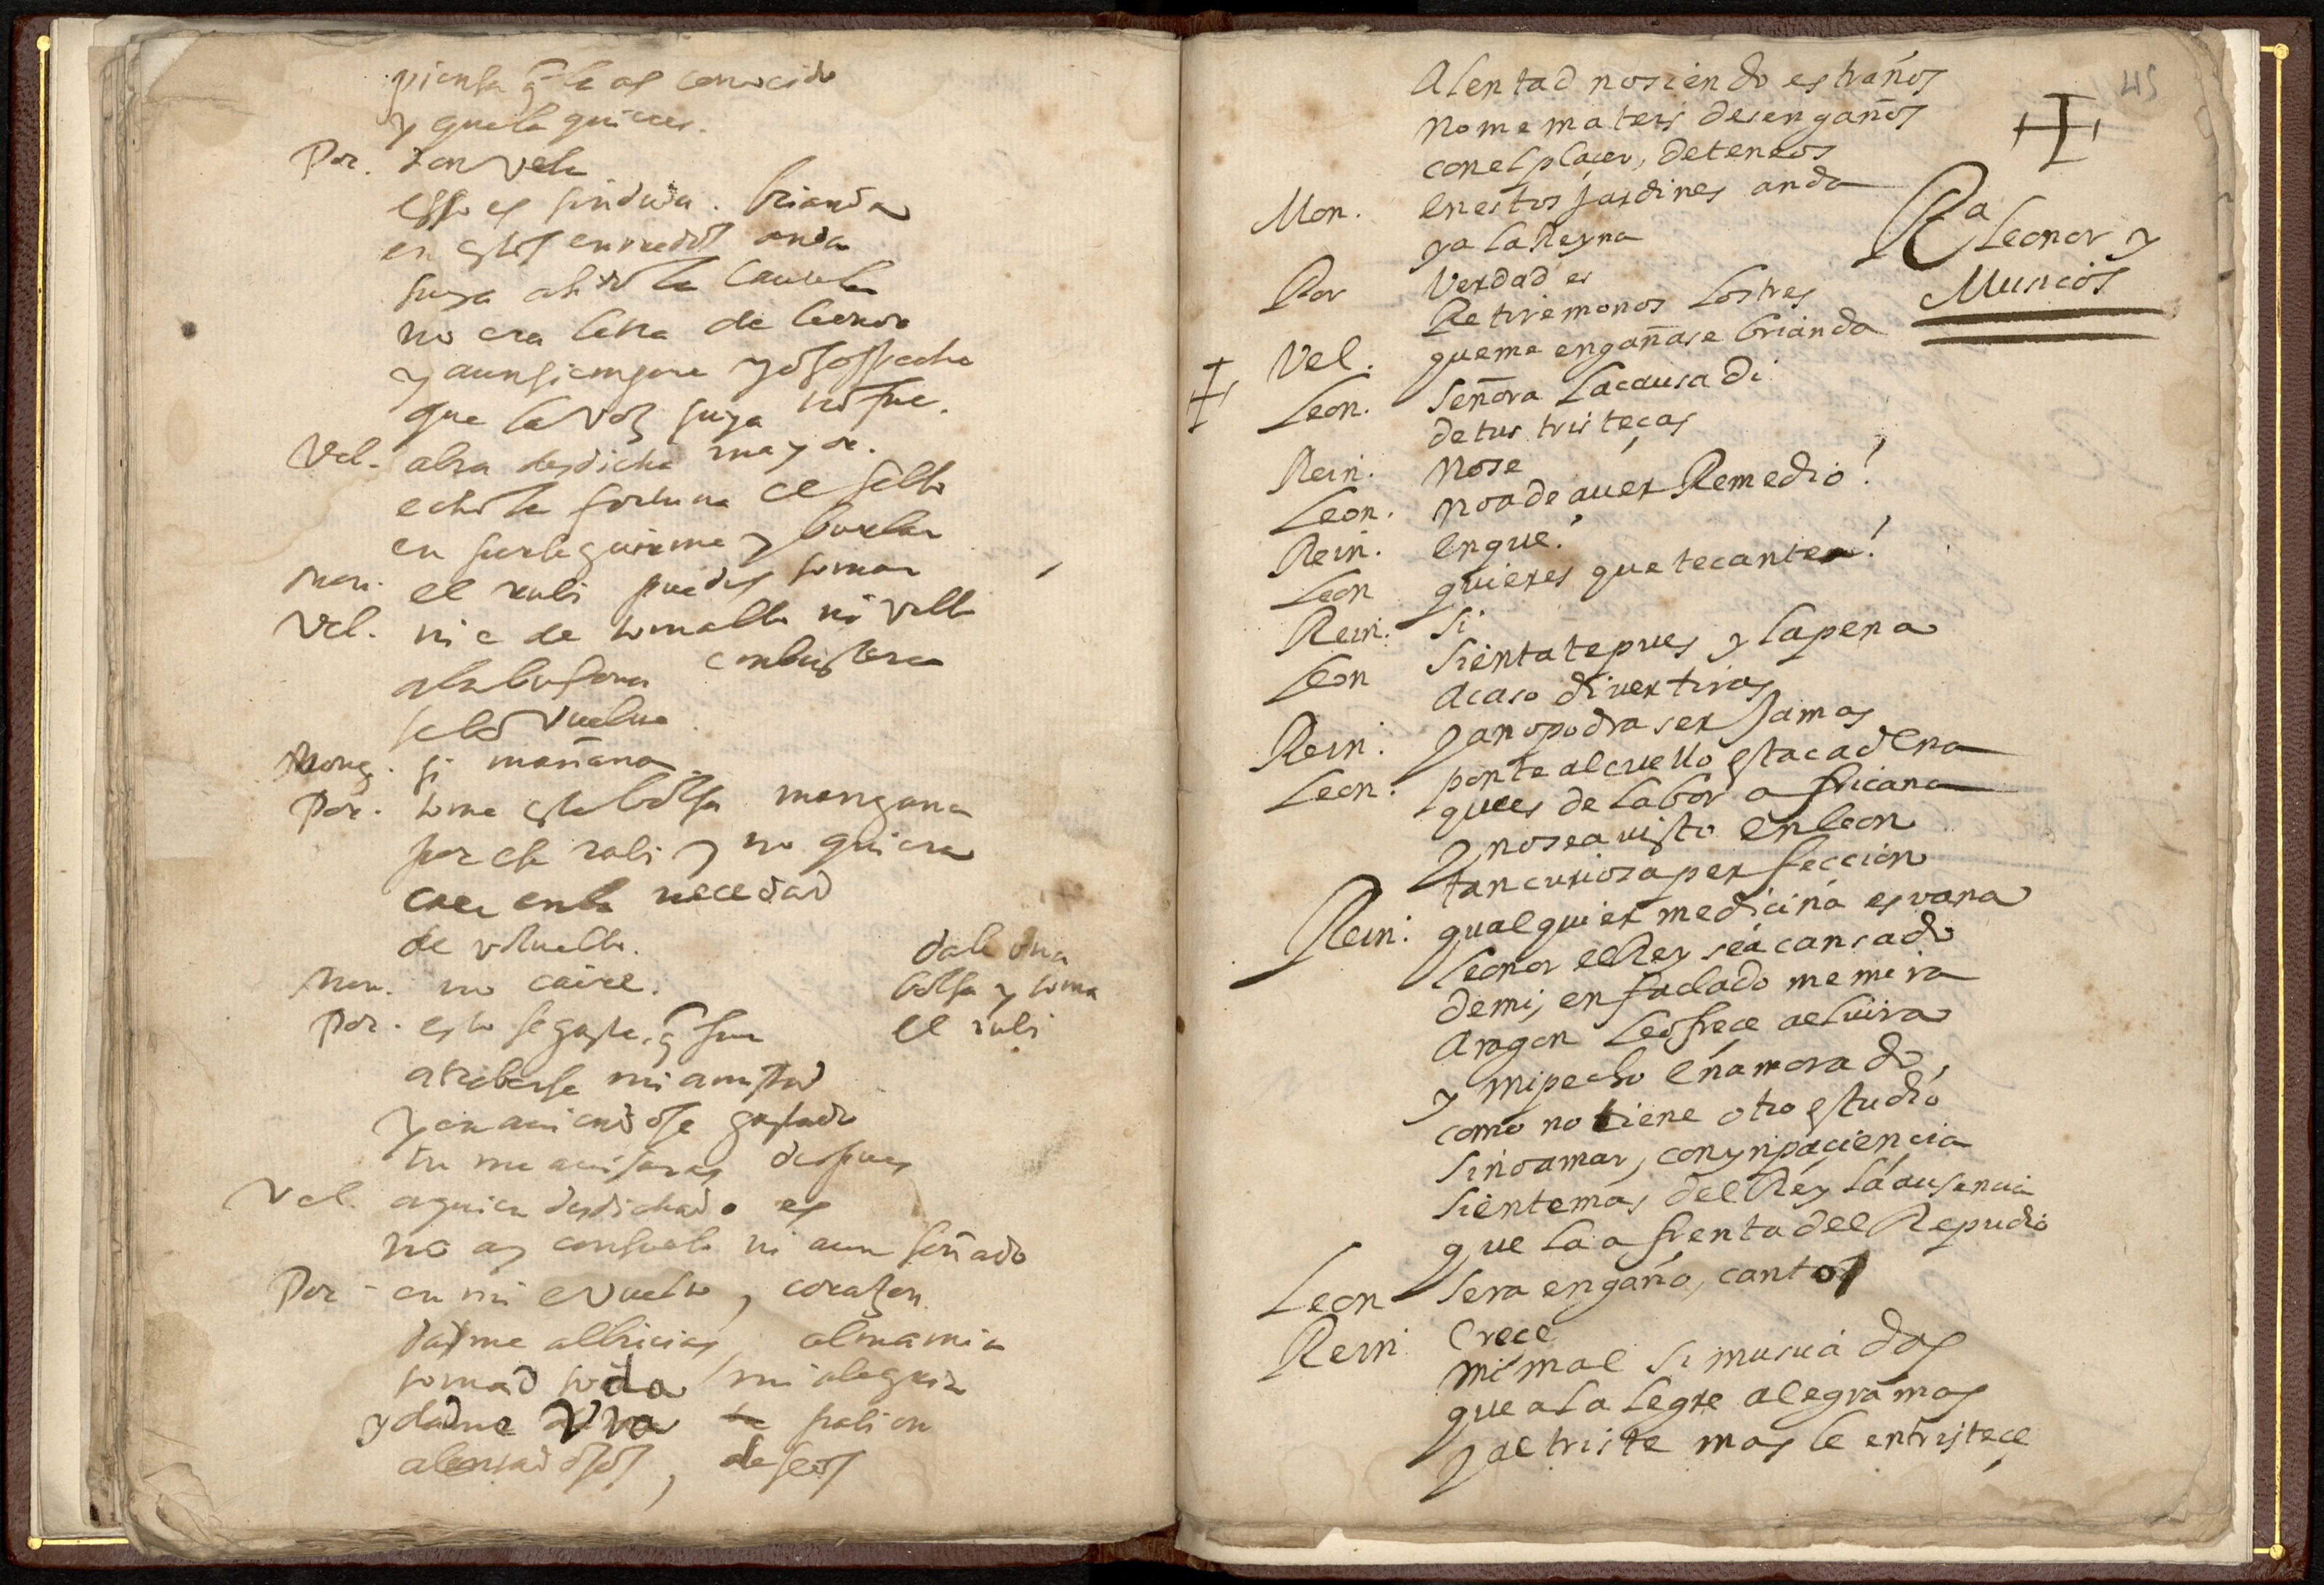 piensa q̃ la as conocido
y que la quieres.
Por. Don Vela
esso es sin duda. brianda
en estos enredos anda
suya a sido la cautela
no era letra de leonor
y aun siempre yo sospeche
que la voz suya no fue.
Vel. otra desdicha mayor.
echo la fortuna el sello
en perseguirme y burlar
Mon. el rubi puedes tomar
Vel. ni e de tomallo ni vello
a la enbustera
se lo vuelve
Mong. si mañana
Por. tome esta bolsa mengana
por este rubi y no quiera
caer en la necedad
de volvello.
dale una
bolsa y toma
el rubi
Mon. no caire.
Por. esto se gaste, q̃ fue
mi amistad
y en aviendose gastado
tu me avisaras despues
Vel. a quien desdichado es
no ay consuelo ni aun soñado
Por - en mi e vuelto, coraçon
dadme albricias, alma mia
tomad toda mi alegria
y dadme vra pasion
alentad deseos
45
Alentad no siendo estraños
no me mateis desengaños
con el placer, deteneos
Mon. en estos jardines anda
ya la Reyna
Ra Leonor y
Musicos
Por Verdad es
Retiremonos los tres
Vel. que me engañase brianda
Leon. Señora la causa di
de tus tristeças
Rein. no se
Leon. no a de aver Remedio?
Rein. en que?
Leon quieres que te canten?
Rein. Si
Leon Sientate pues y la pena
acaso divertiras
Rein. ya no podra ser Jamas
Leon. ponte al cuello esta cadena
que es de labor africana
y no se a visto en leon
tan curiosa perfeccion
Rein. qualquier medicina es vana
leonor el Rey se a cansado
de mi, enfadado me mira
Aragon le ofrece a elvira
y mi pecho enamorado,
como no tiene otro estudio
sino amar, con inpaciencia
siente mas del Rey la ausencia
que la afrenta del Repudio
Leon Sera engaño, cantos
Rein. Crece
mi mal si musica das
que al alegre alegra mas
y al triste mas le entristece